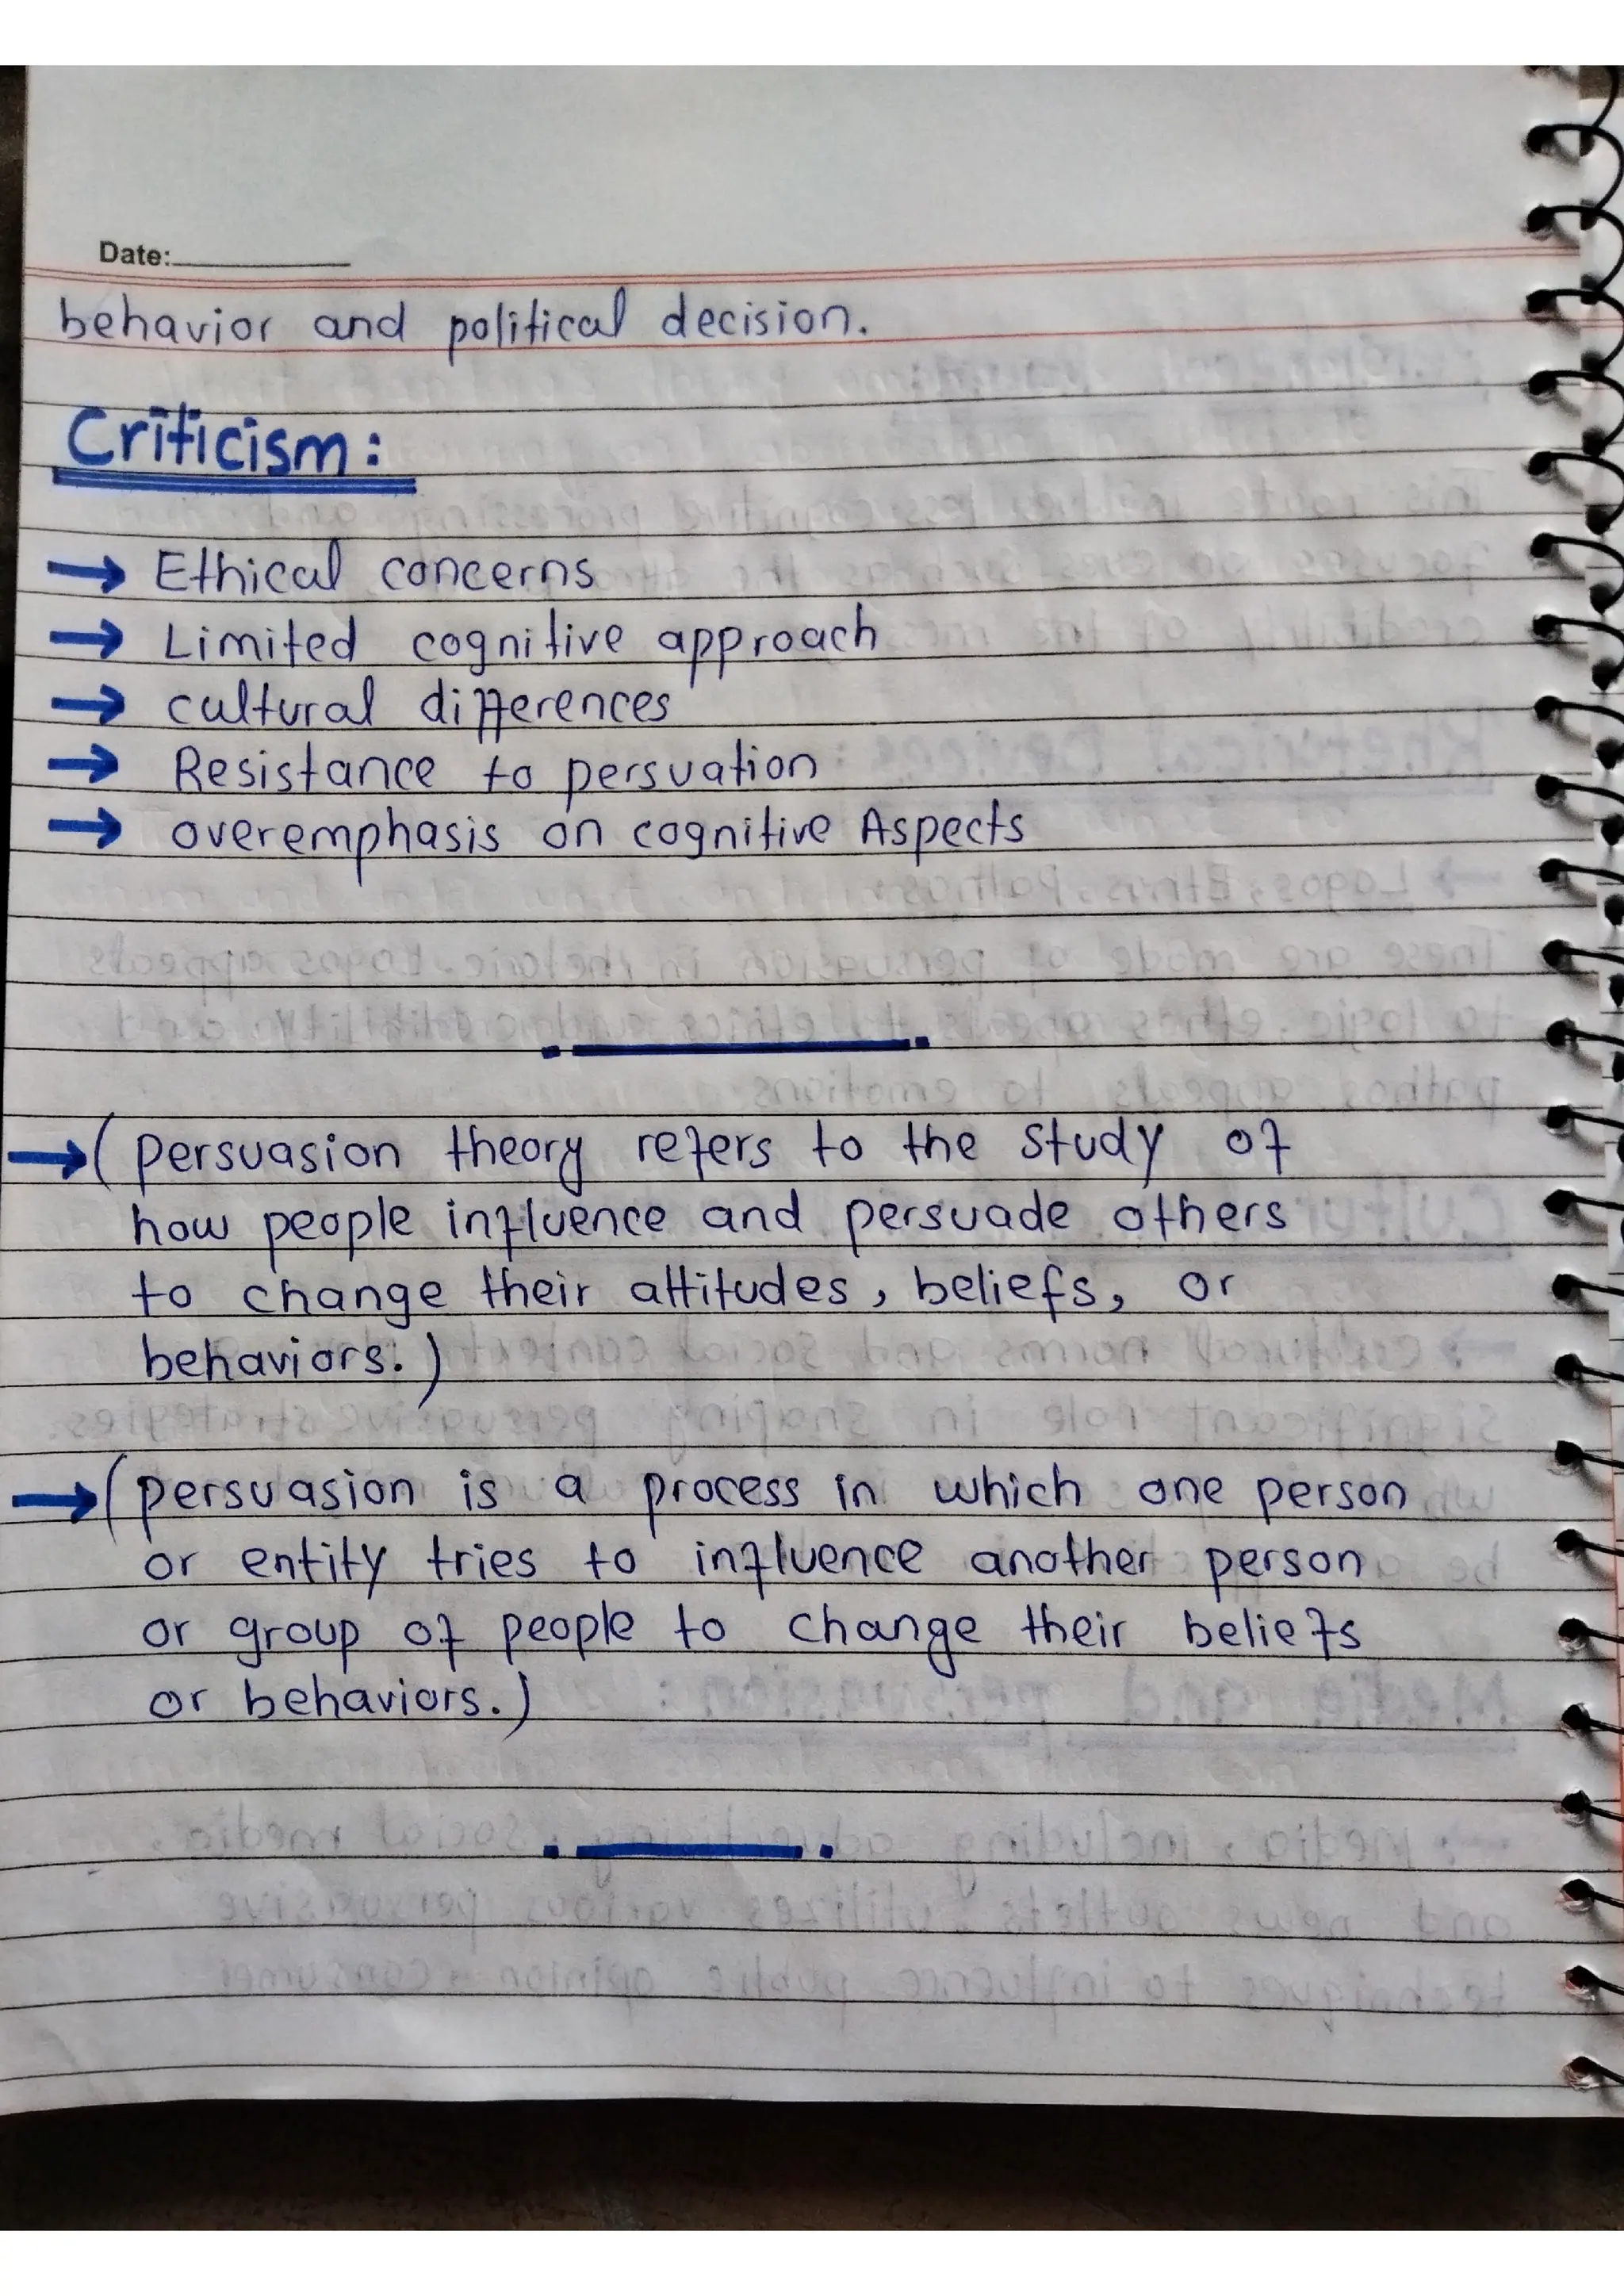 Date:
behavior and political decision.
Criticism:
→ Ethical concerns
→ Limited cognitive approach
→ cultural differences
→ Resistance to persuation
→ overemphasis on cognitive Aspects
→ (persuasion theory refers to the study of
how people influence and persuade others
to change their attitudes, beliefs, or
behaviors.)
→ (persuasion is a process in which one person
or entity tries to influence another person
or group of people to change their beliefs
or behaviors.)